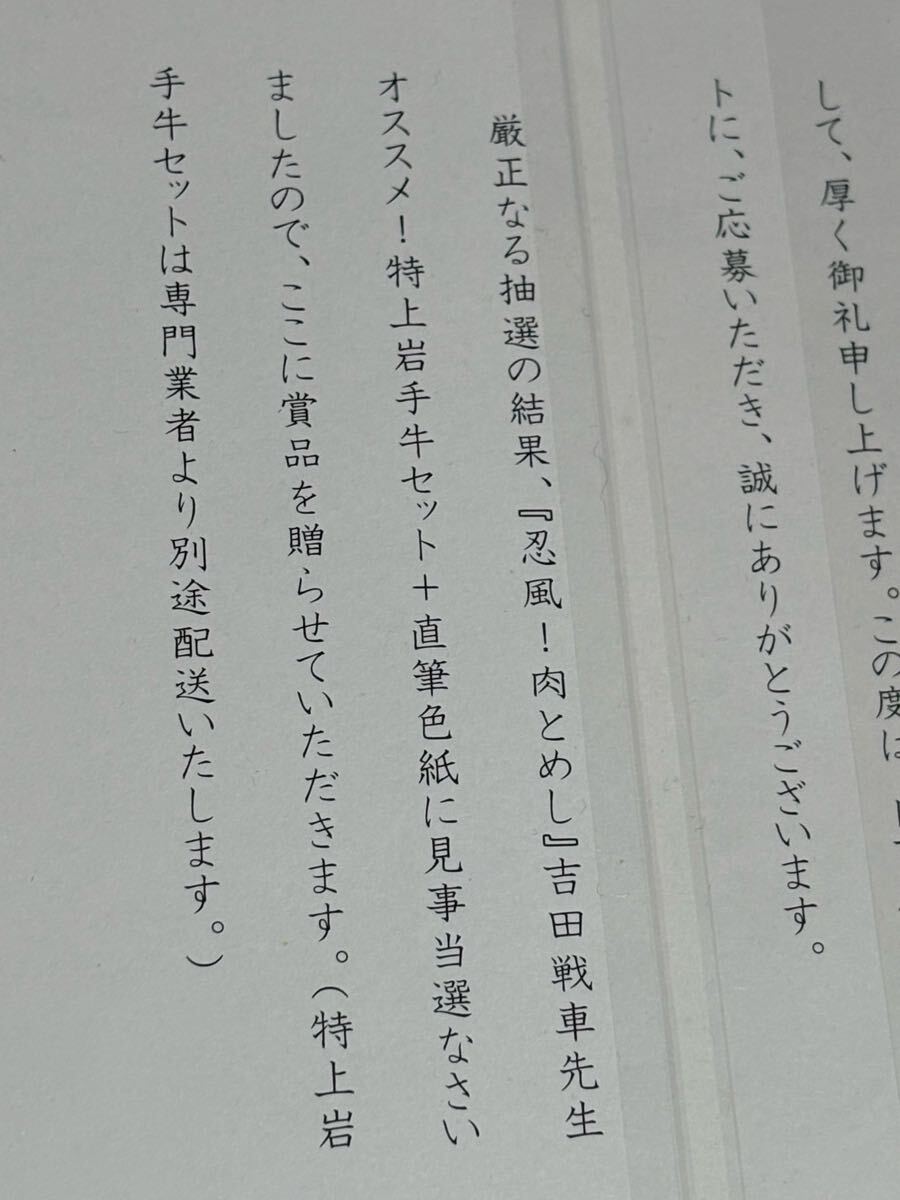 して、厚く御礼申し上げます。この度は
トに、ご応募いただき、誠にありがとうございます。
厳正なる抽選の結果、『忍風！肉とめし』吉田戦車先生
オススメ！特上岩手牛セット＋直筆色紙に見事当選なさい
ましたので、ここに賞品を贈らせていただきます。（特上岩
手牛セットは専門業者より別途配送いたします。）